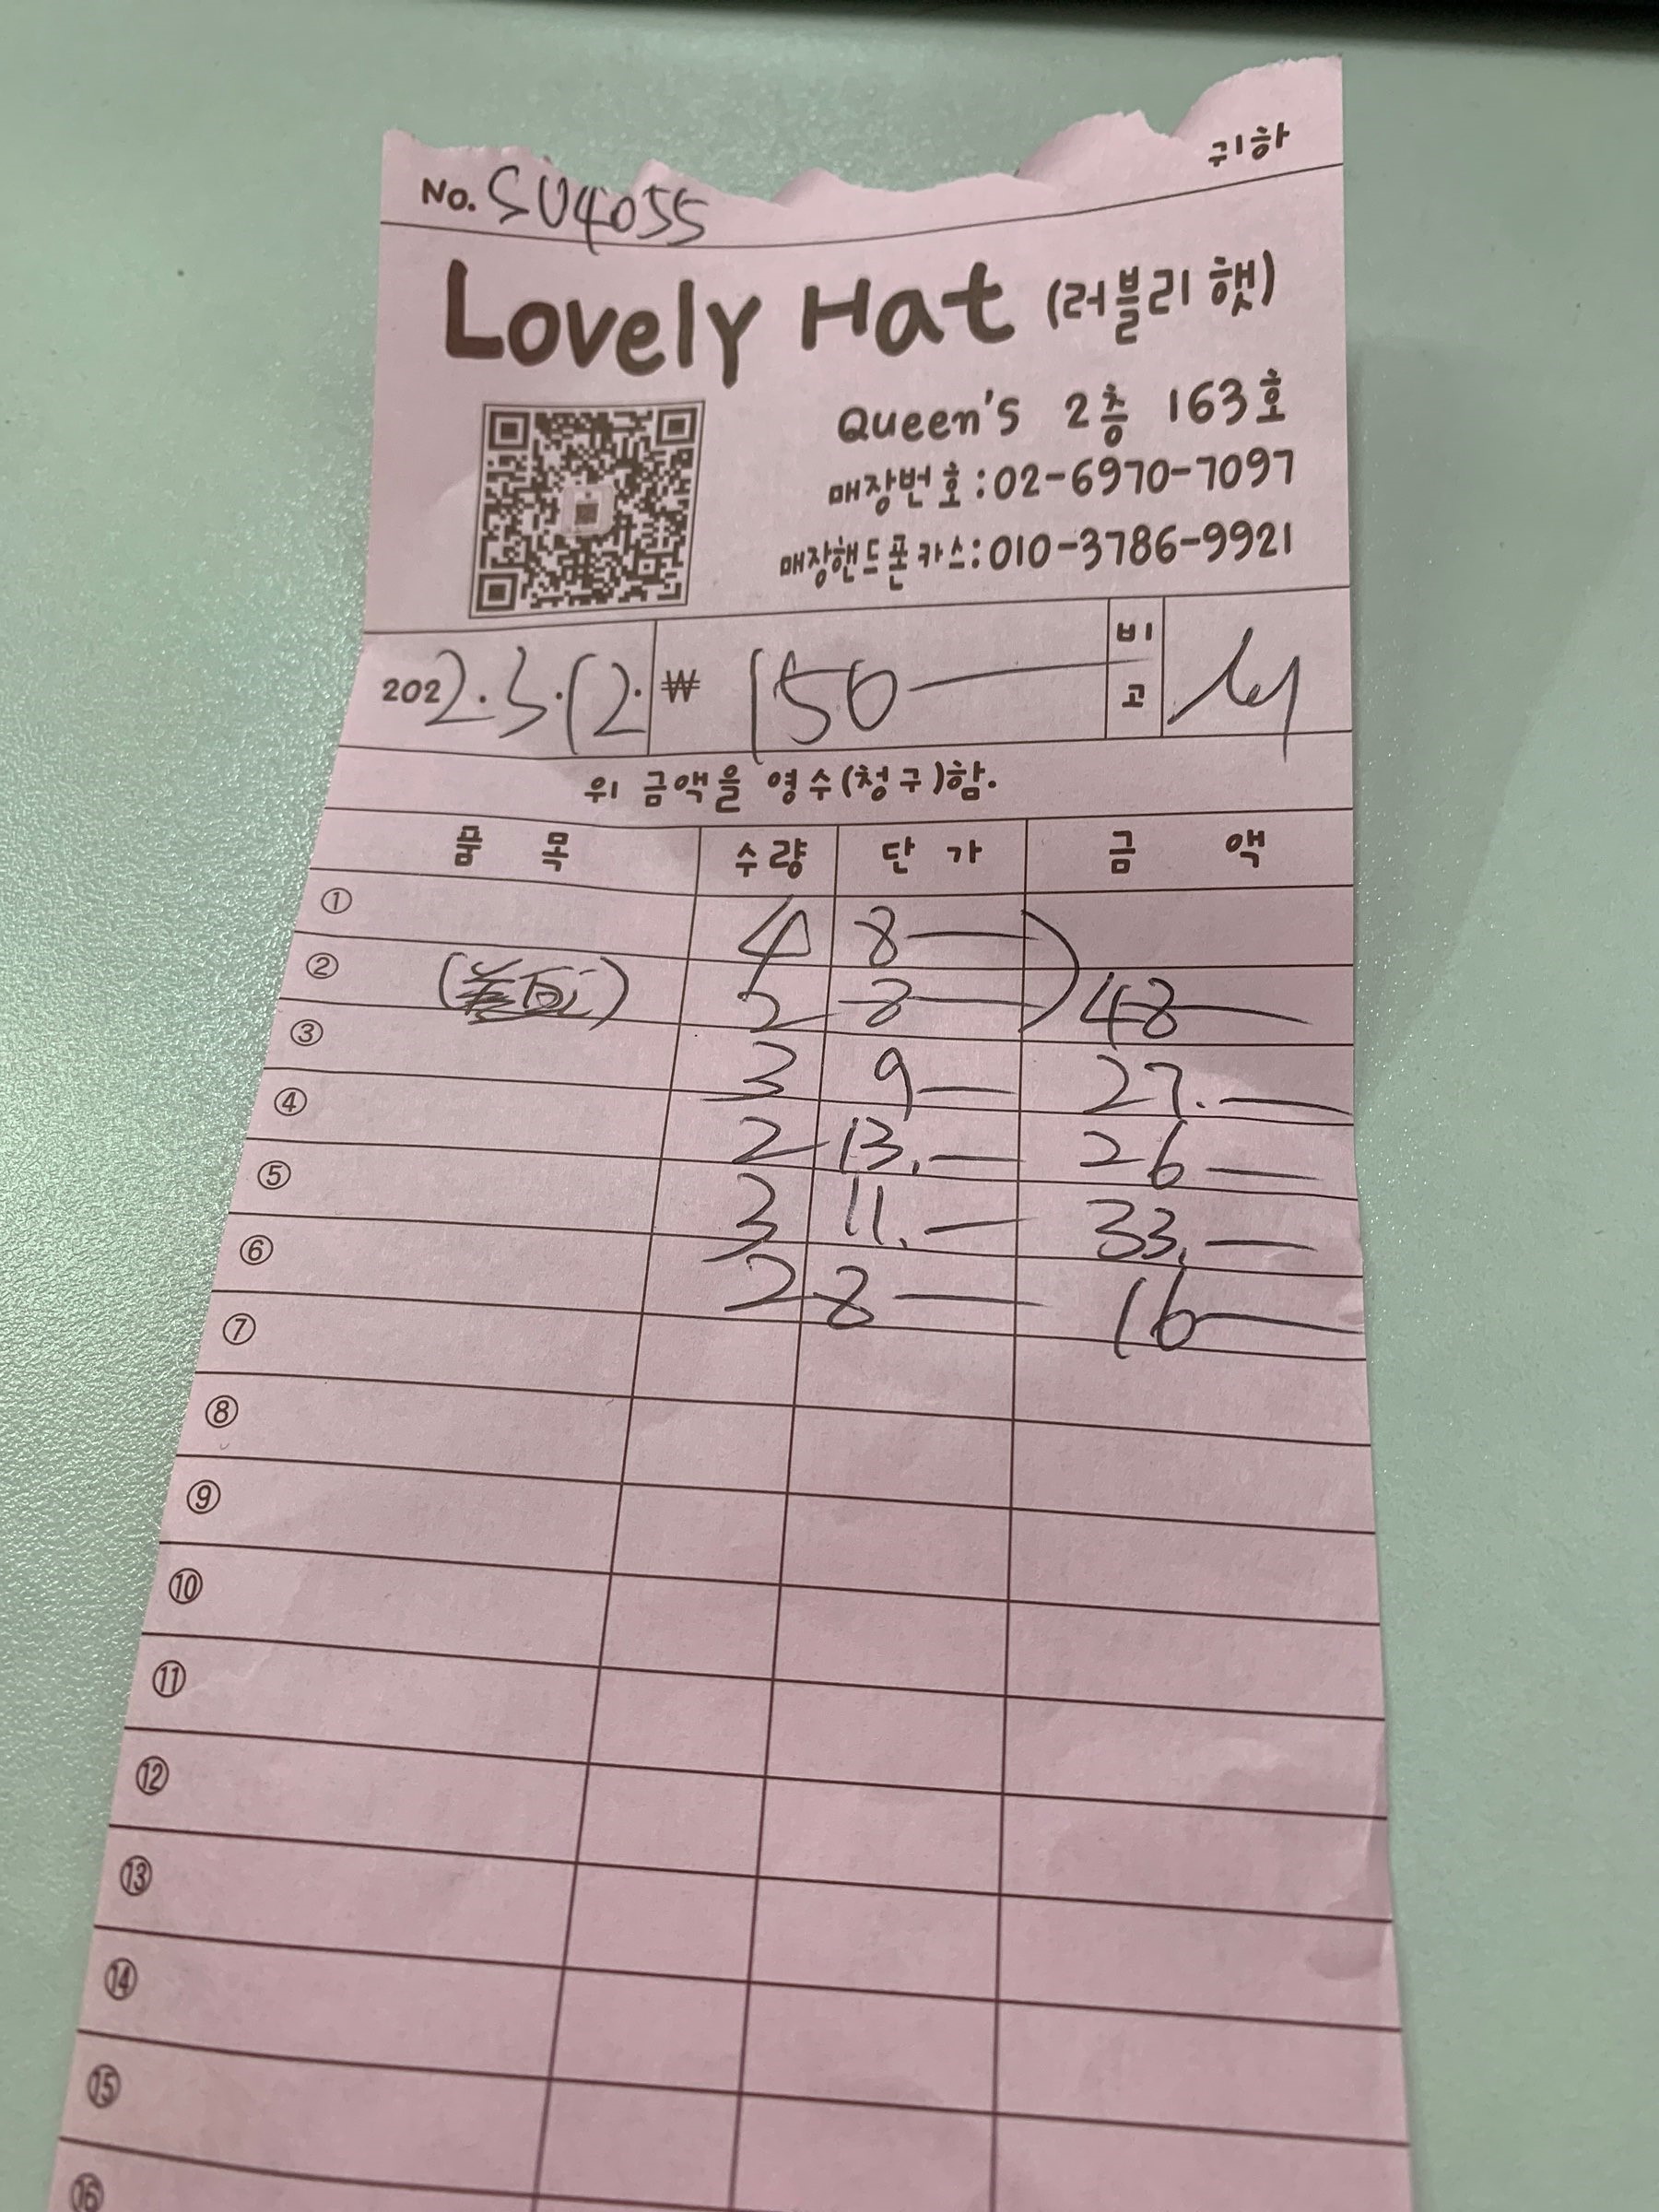 귀하
No. SU4055
Lovely Hat (러블리 햇)
Queen's 2층 163호
매장번호:02-6970-7097
매장핸드폰카스:010-3786-9921
2022.3.12. ₩ 150 — 비고
위 금액을 영수(청구)함.
품 목 수량 단 가 금 액
① 4 8 —
② 2 8 — 48 —
③ 3 9 — 27. —
④ 2 13. — 26 —
⑤ 3 11. — 33. —
⑥ 2 8 — 16 —
⑦
⑧
⑨
⑩
⑪
⑫
⑬
⑭
⑮
⑯